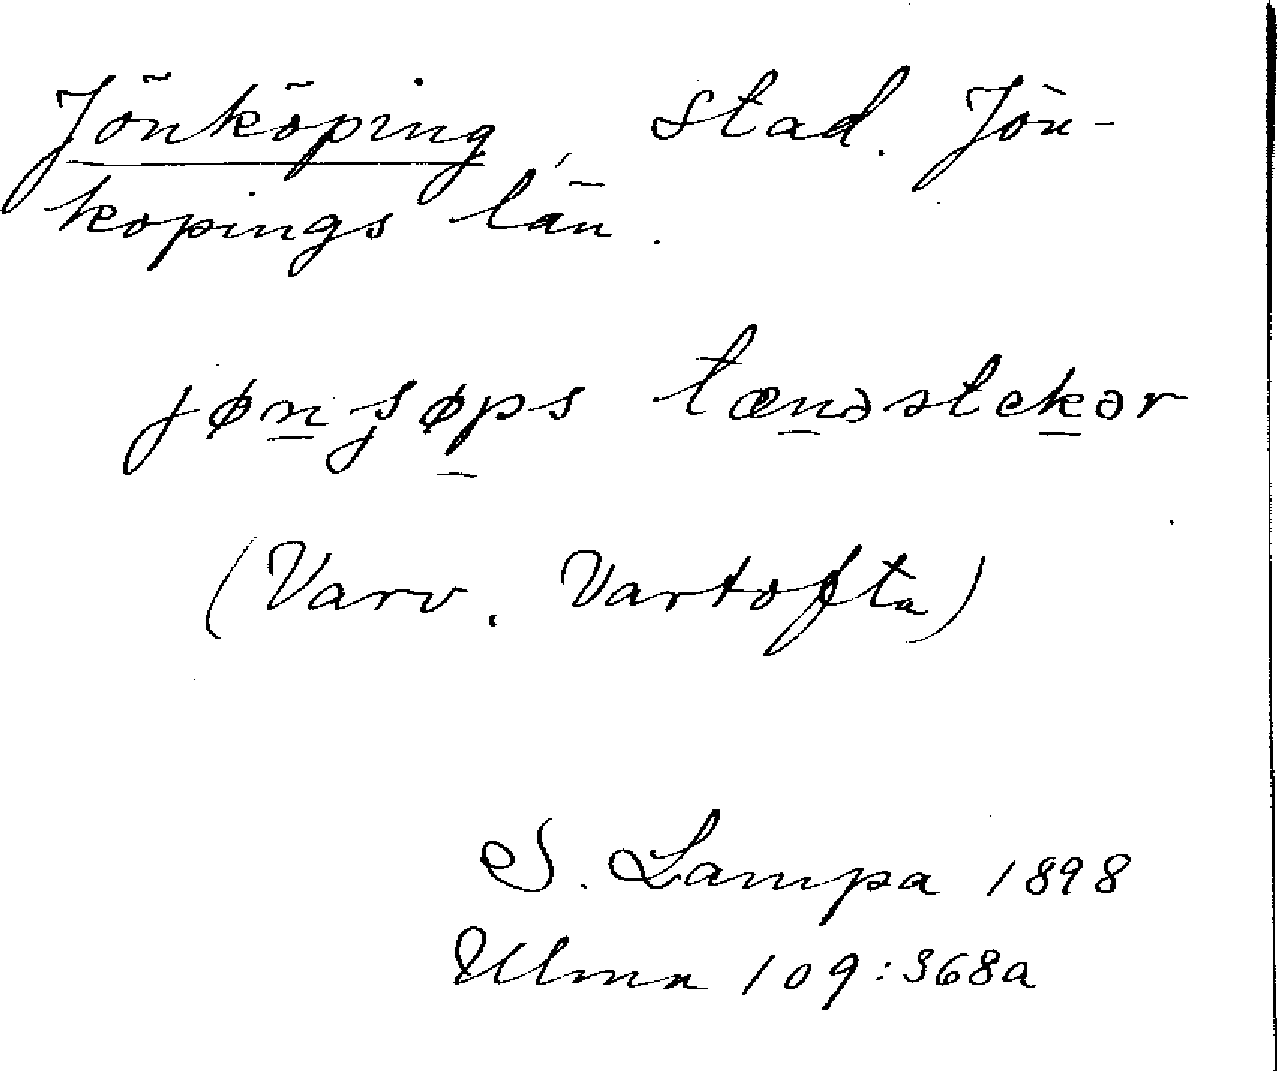 Jönköping, stad. Jön-
köpings län.
jønʂøps tænəstekər
(Varv. Vartofta)
S. Lampa 1898
Ulma 109:368a